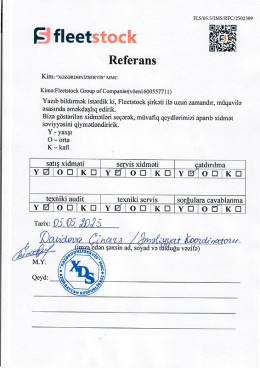 FLS/05.3/IMS/RFC/2502389
fleetstock
Referans
Kim: "XƏZƏRDƏNİZSERVİS" MMC
Kimə:Fleetstock Group of Companie(vöen1600557711)
Yazıb bildirmək istərdik ki, Fleetstock şirkəti ilə uzun zamandır, müqavilə
əsasında əməkdaşlıq edirik.
Bizə göstərilən xidmətləri seçərək, müvafiq qeydlərimizi aparıb xidmət
səviyyəsini qiymətləndiririk.
Y - yaxşı
O – orta
K – kafi
satış xidməti servis xidməti çatdırılma
Y ☑ O ☐ K ☐ Y ☑ O ☐ K ☐ Y ☑ O ☐ K ☐
texniki audit texniki servis sorğulara cavablanma
Y ☑ O ☐ K ☐ Y ☑ O ☐ K ☐ Y ☑ O ☐ K ☐
Tarix: 05.05.2025
Davidova Çinarə / Əməliyyat Koordinatoru
(imza edən şəxsin ad, soyad və tutduğu vəzifə)
M.Y.
XDS
Qeyd: